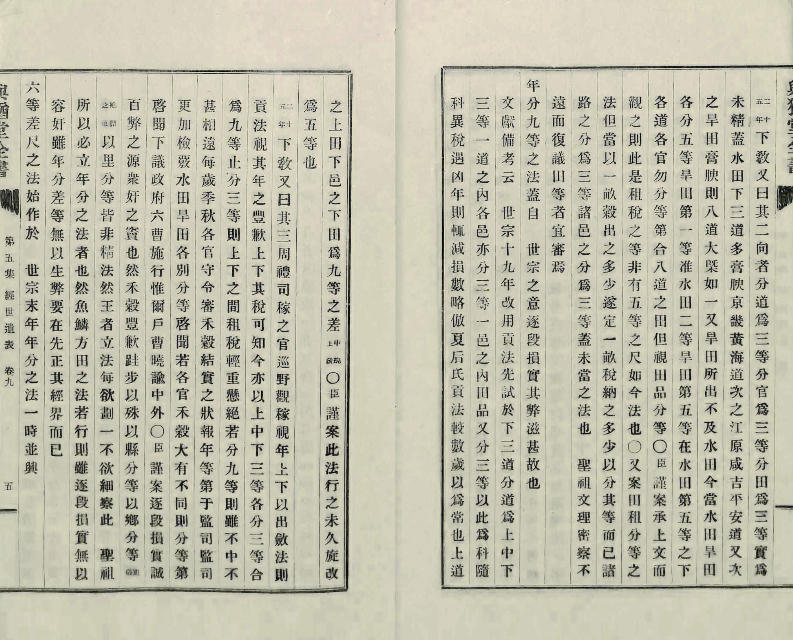 二十五年下敎又曰其二向者分道爲三等分官爲三等分田爲三等實爲
未精蓋水田下三道多膏腴京畿黃海道次之江原咸吉平安道又次
之旱田膏腴則八道大槩如一又旱田所出不及水田今當水田旱田
各分五等旱田第一等准水田二等旱田第五等在水田第五等之下
各道各官勿分等第合八道之田但視田品分等〇臣謹案承上文而
觀之則此是租稅之等非有五等之尺如今法也〇又案田租分等之
法但當以一畝穀出之多少遂定一畝稅納之多少以分其等而已諸
路之分爲三等諸邑之分爲三等蓋未當之法也 聖祖文理密察不
遠而復議田等者宜審焉
年分九等之法蓋自 世宗之意逐段損實其弊滋甚故也
文獻備考云 世宗十九年改用貢法先試於下三道分道爲上中下
三等一道之內各邑亦分三等一邑之內田品又分三等以此爲科隨
科異稅遇凶年則輒減損數略倣夏后氏貢法較數歲以爲常也上道
之上田下邑之下田爲九等之差〇臣謹案此法行之未久旋改
爲五等也
二十五年下敎又曰其三周禮司稼之官巡野觀稼視年上下以出斂法則
貢法視其年之豐歉上下其稅可知今亦以上中下三等各分三等合
爲九等止分三等則上下之間租稅輕重懸絕若分九等則雖不中不
甚相遠每歲季秋各官守令審禾穀結實之狀報年等第于監司監司
更加檢發水田旱田各別分等啓聞若各官禾穀大有不同則分等第
啓聞下議政府六曹施行惟爾戶曹曉諭中外〇臣謹案逐段損實誠
百弊之源衆奸之竇也然禾穀豐歉跬步以殊以縣分等以鄕分等
以里分等皆非精法然王者立法每欲劃一不欲細察此 聖祖
所以必立年分之法者也然魚鱗方田之法若行則雖逐段損實無以
容奸雖年分差等無以生弊要在先正其經界而已
六等差尺之法始作於 世宗末年年分之法一時並興
與猶堂全書
第五集 經世遺表 卷九
五